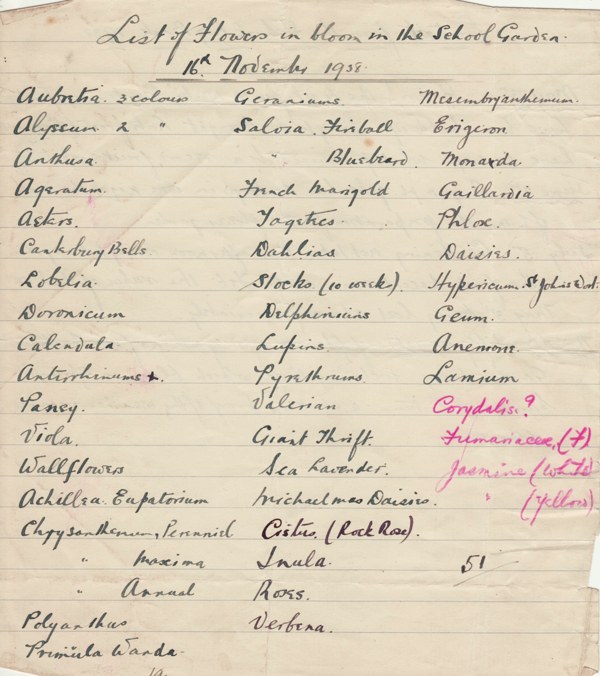 List of Flowers in bloom in the School Garden.
16th November 1938.
Aubretia. 3 colours
Alyssum 2 "
Anchusa
Ageratum.
Asters.
Canterbury Bells
Lobelia.
Doronicum
Calendula.
Antirrhinums +.
Pansy.
Viola.
Wallflowers
Achillea. Eupatorium
Chrysanthemum, Perennial
" Maxima
" Annual
Polyanthus
Primula Wanda.
Geraniums.
Salvia. Fireball
" Bluebeard.
French Marigold
Tagetes.
Dahlias
Stocks (10 week).
Delphiniums
Lupins.
Pyrethrums.
Valerian
Giant Thrift.
Sea Lavender.
Michaelmas Daisies.
Cistus. (Rock Rose).
Inula.
Roses.
Verbena.
Mesembryanthemum.
Erigeron
Monarda.
Gaillardia
Phlox.
Daisies.
Hypericum. St Johns Wort.
Geum.
Anemone.
Lamium
Corydalis?
Fumariaceae, (F)
Jasmine (White)
" (Yellow)
51